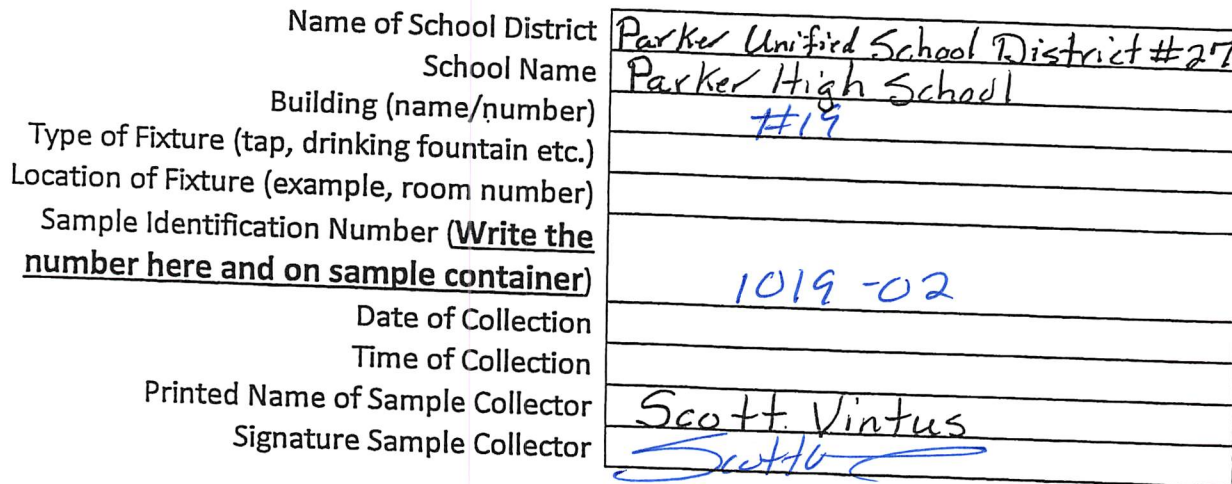 Name of School District Parker Unified School District #27
School Name Parker High School
Building (name/number) #19
Type of Fixture (tap, drinking fountain etc.)
Location of Fixture (example, room number)
Sample Identification Number (Write the
number here and on sample container) 1019-02
Date of Collection
Time of Collection
Printed Name of Sample Collector Scott Vintus
Signature Sample Collector